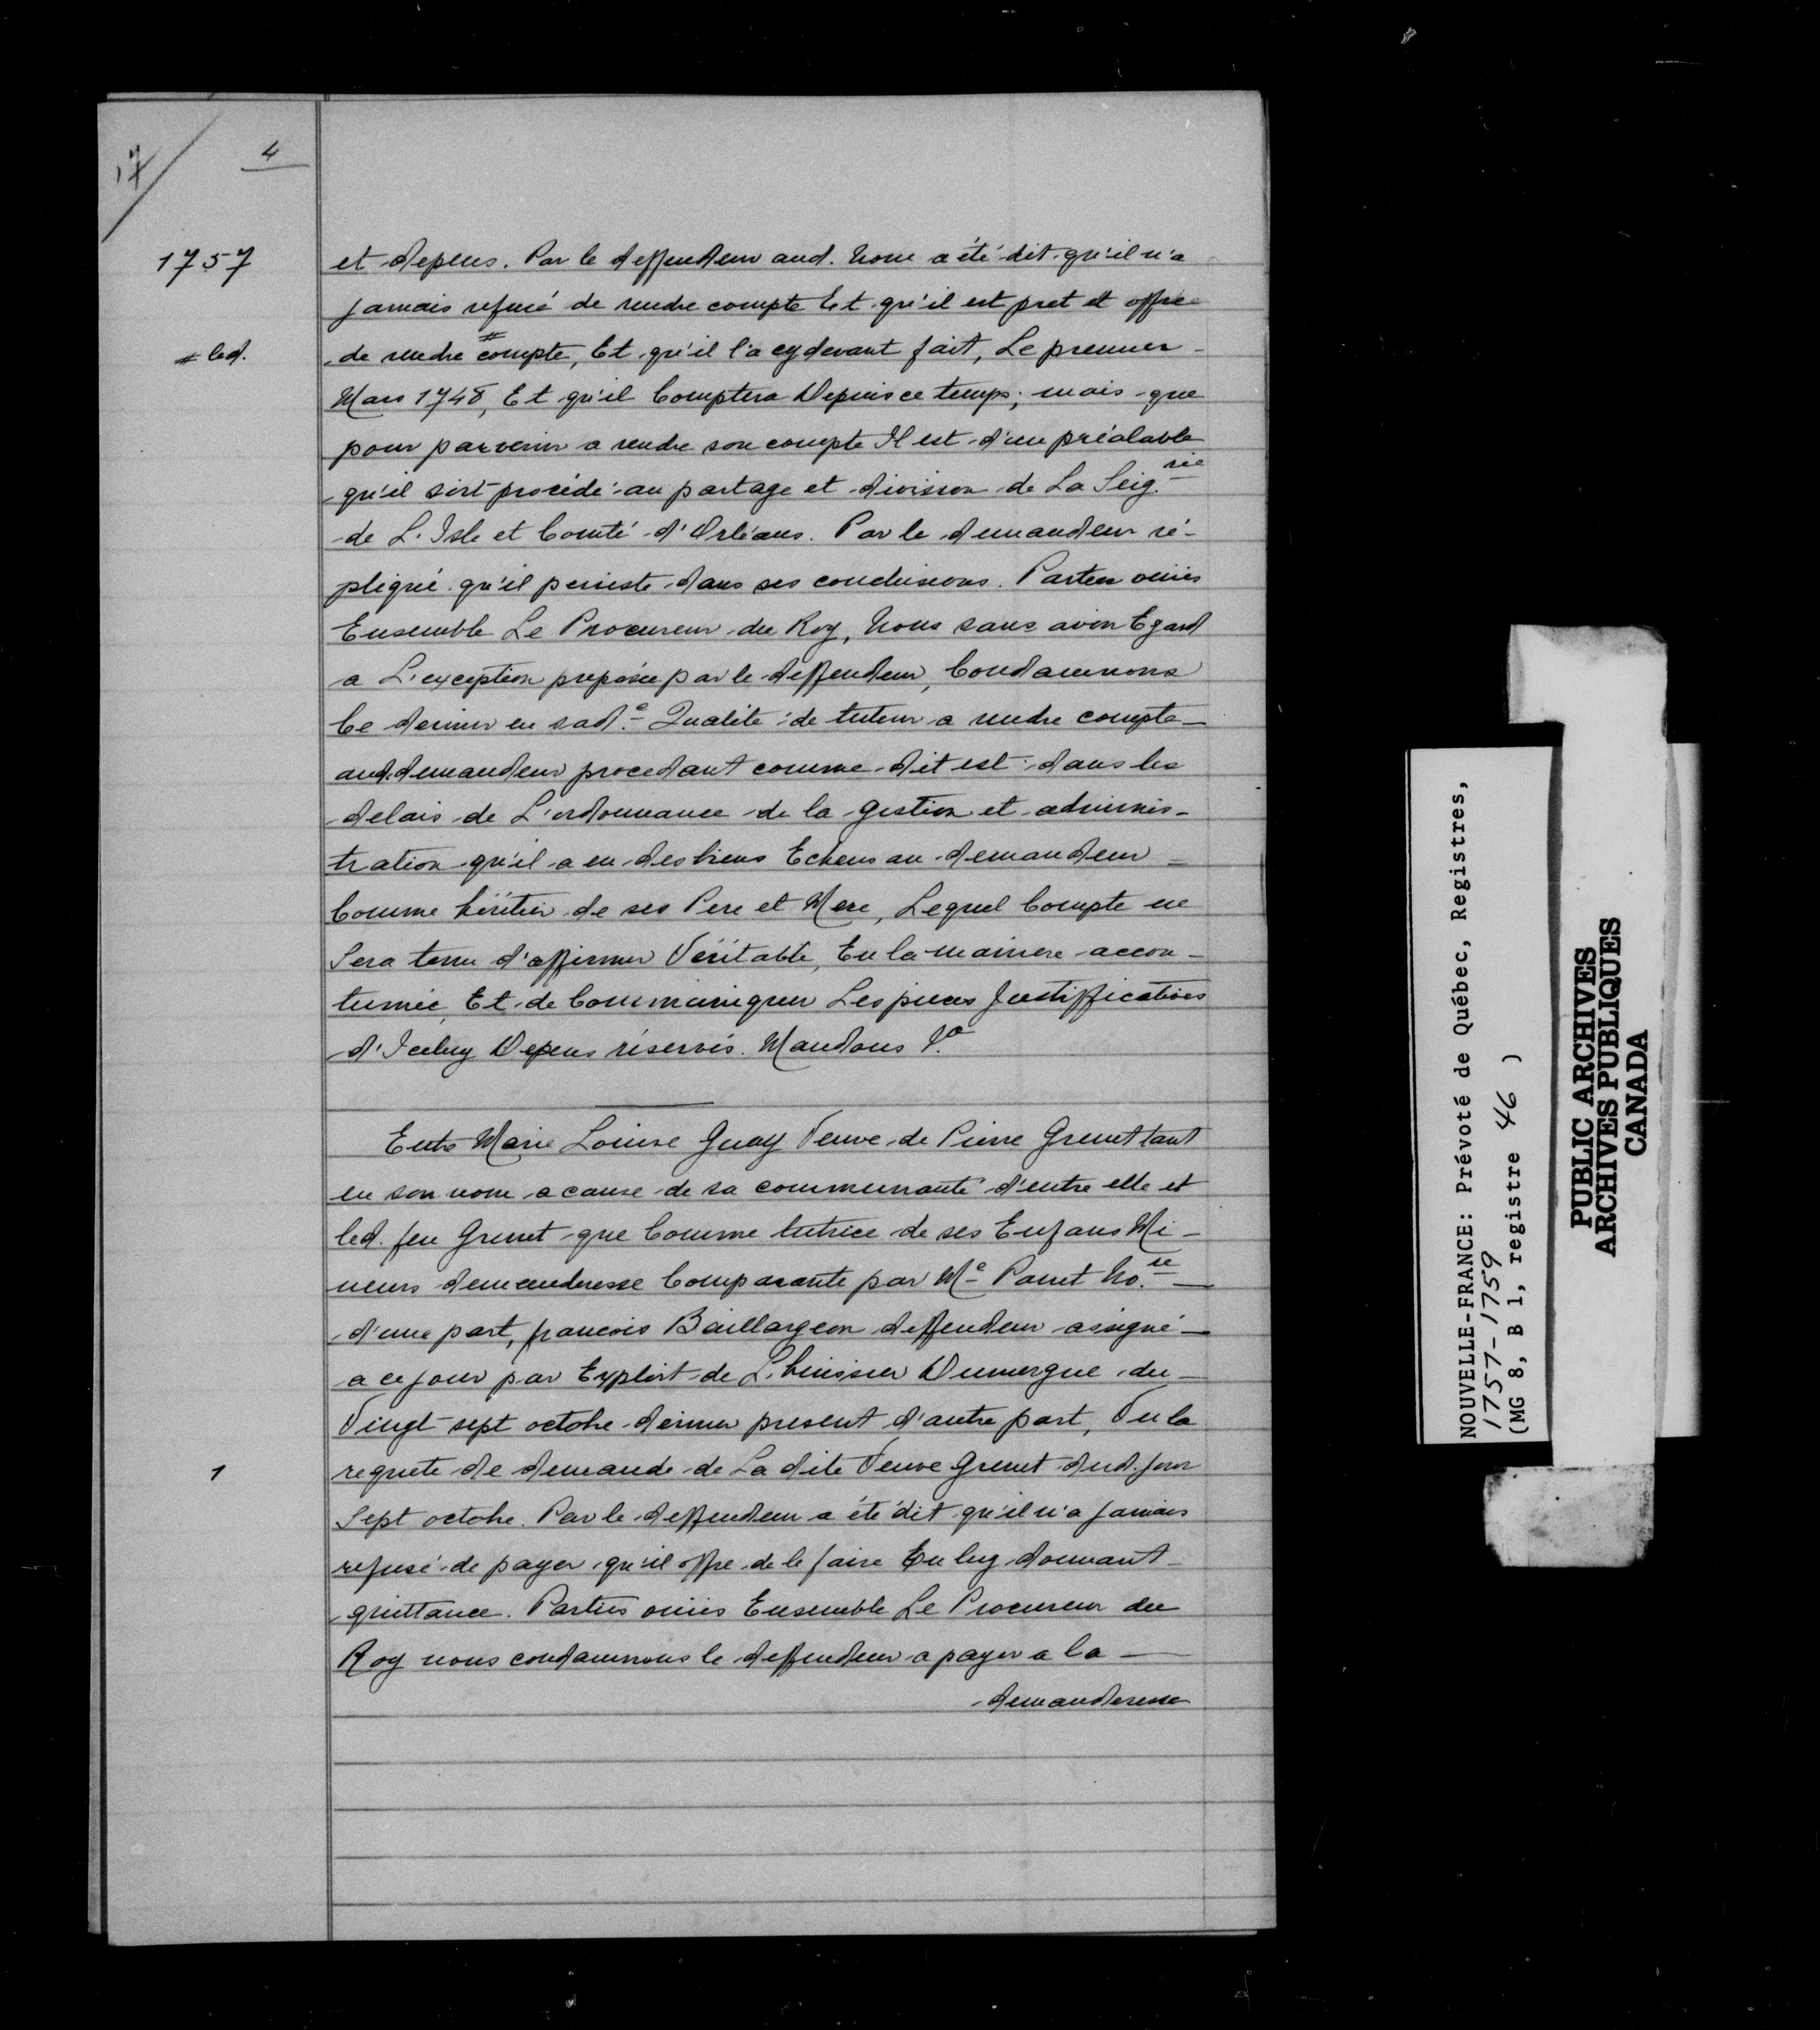 17/
4
1757
et depens. Par le deffendeur aud. Nom a été dit qu'il n'a
jamais refusé de rendre compte Et qu'il est pret et offre
# led.
de rendre # compte, Et qu'il l'a cydevant fait, Le premier
Mars 1748, Et qu'il Comptera Depuis ce temps; mais que
pour parvenir a rendre son compte Il est d'un préalable
qu'il soit procédé au partage et division de La Seig.rie
de L'Isle et Comté d'Orléans. Par le demandeur ré-
pliqué qu'il persiste dans ses conclusions. Parties ouies
Ensemble Le Procureur du Roy, Nous sans avoir Egard
a L'exception proposée par le deffendeur, Condamnons
Ce dernier en sad.e Qualité de tuteur a rendre compte
aud. demandeur procedant comme dit est dans les
delais de L'ordonnance de la gestion et adminis-
tration qu'il a eu des biens Echeus au demandeur
Comme héritier de ses Pere et Mere, Lequel Compte il
Sera tenu d'affirmer Véritable, En la maniere accou-
tumée, Et de Communiquer Les pieces Justifficatives
d'Iceluy Depens réservés. Mandons &a
Entre Marie Louise Guay Veuve de Pierre Grenet tant
en son nom a cause de sa communauté d'entre elle et
led. feu Grenet que Comme tutrice de ses Enfans Mi-
neurs demanderesse Comparante par Me Panet No.re
d'une part, francois Baillargeon deffendeur assigné
a ce jour par Exploit de L'huissier Dumergue du
Vingt-sept octobre dernier present d'autre part, Vu la
1
requete de demande de La dite Veuve Grenet dud. jour
Sept octobre. Par le deffendeur a été dit qu'il n'a jamais
refusé de payer qu'il offre de le faire En luy donnant
quittance. Parties ouies Ensemble Le Procureur du
Roy nous condamnons le deffendeur a payer a la
demanderesse
NOUVELLE-FRANCE: Prévoté de Québec, Registres,
1757-1759
(MG 8, B 1, registre 46 )
PUBLIC ARCHIVES
ARCHIVES PUBLIQUES
CANADA